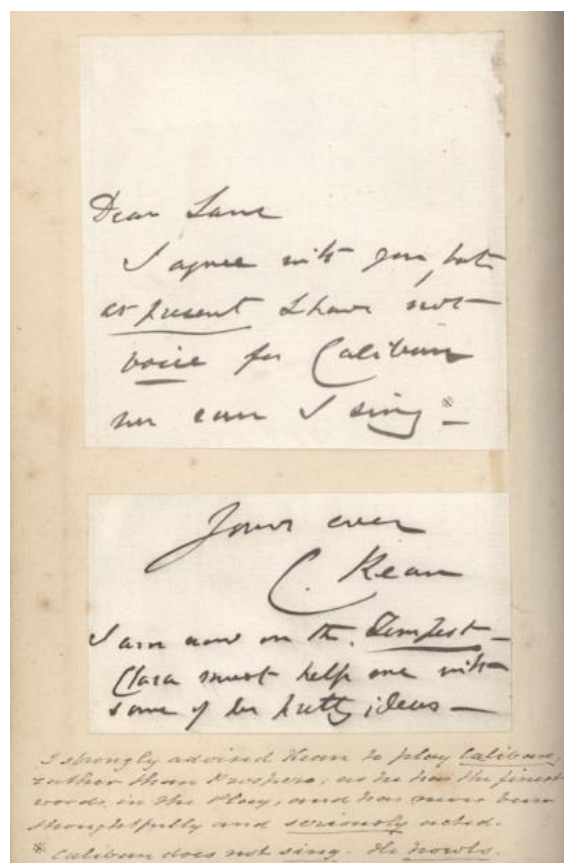 Dear Lane
I agree with you, but
at present I have not
voice for Caliban
nor can I sing *—
Yours ever
C. Kean
I am now on the Tempest—
Clara must help me with
some of her pretty ideas—
I strongly advised Kean to play Caliban,
rather than Prospero; as he has the finest
words, in the Play, and has never been
thoughtfully and seriously acted.
* Caliban does not sing. He howls.